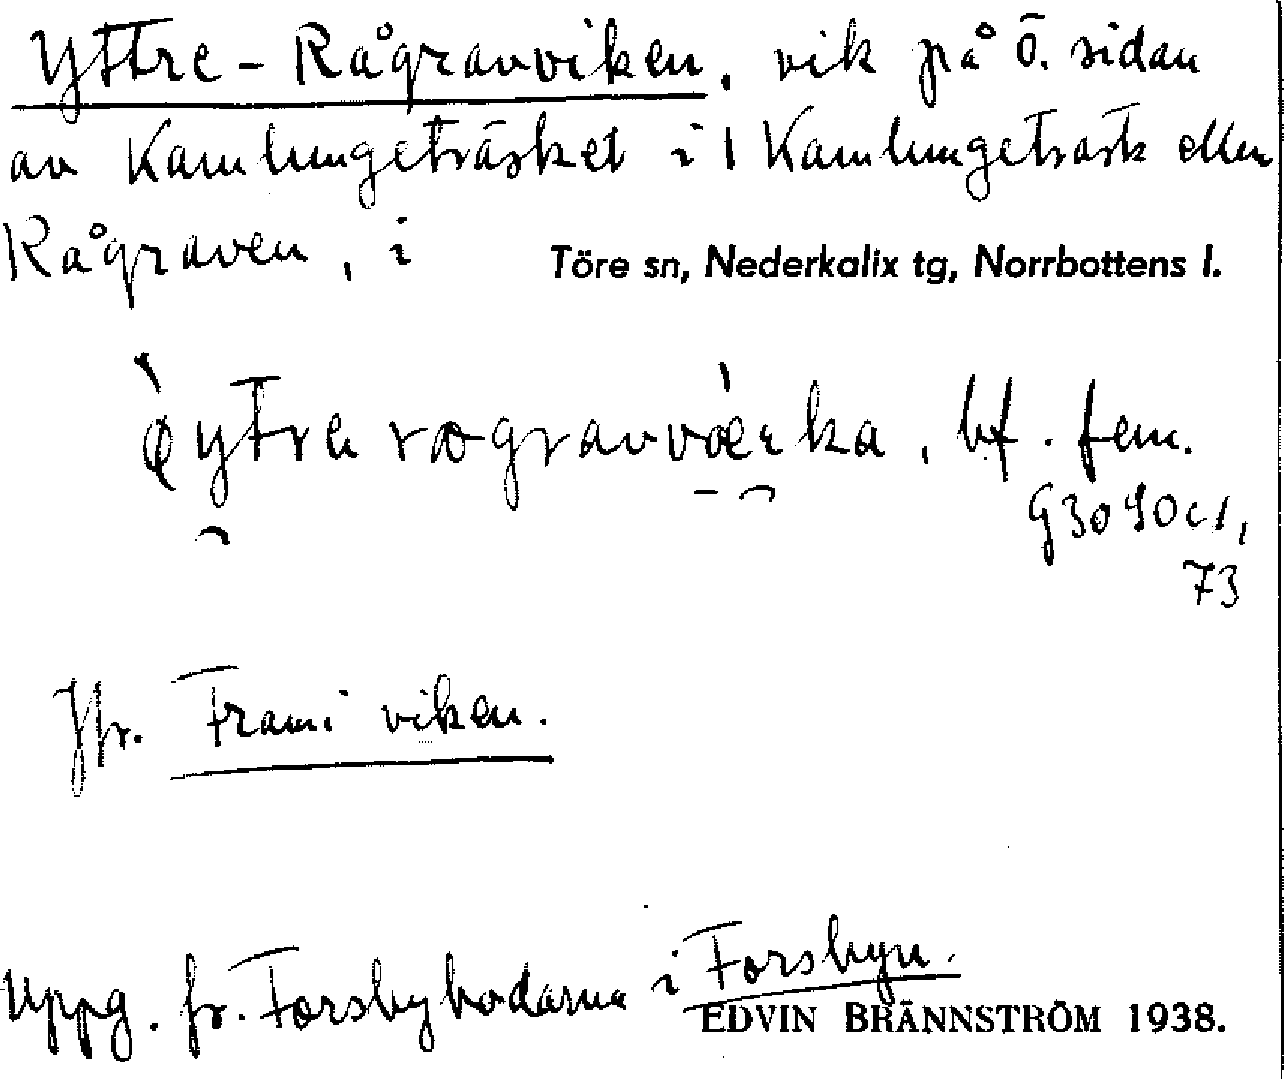 Yttre-Rågravviken, vik på ö. sidan
av Kamlungeträsket i 1 Kamlungeträsk eller
Rågraven, i Töre sn, Nederkalix tg, Norrbottens l.
bf. fem.
73
Jfr. Frami viken.
Uppg. fr. Forsbybodarna i Forsbyn.
EDVIN BRÄNNSTRÖM 1938.